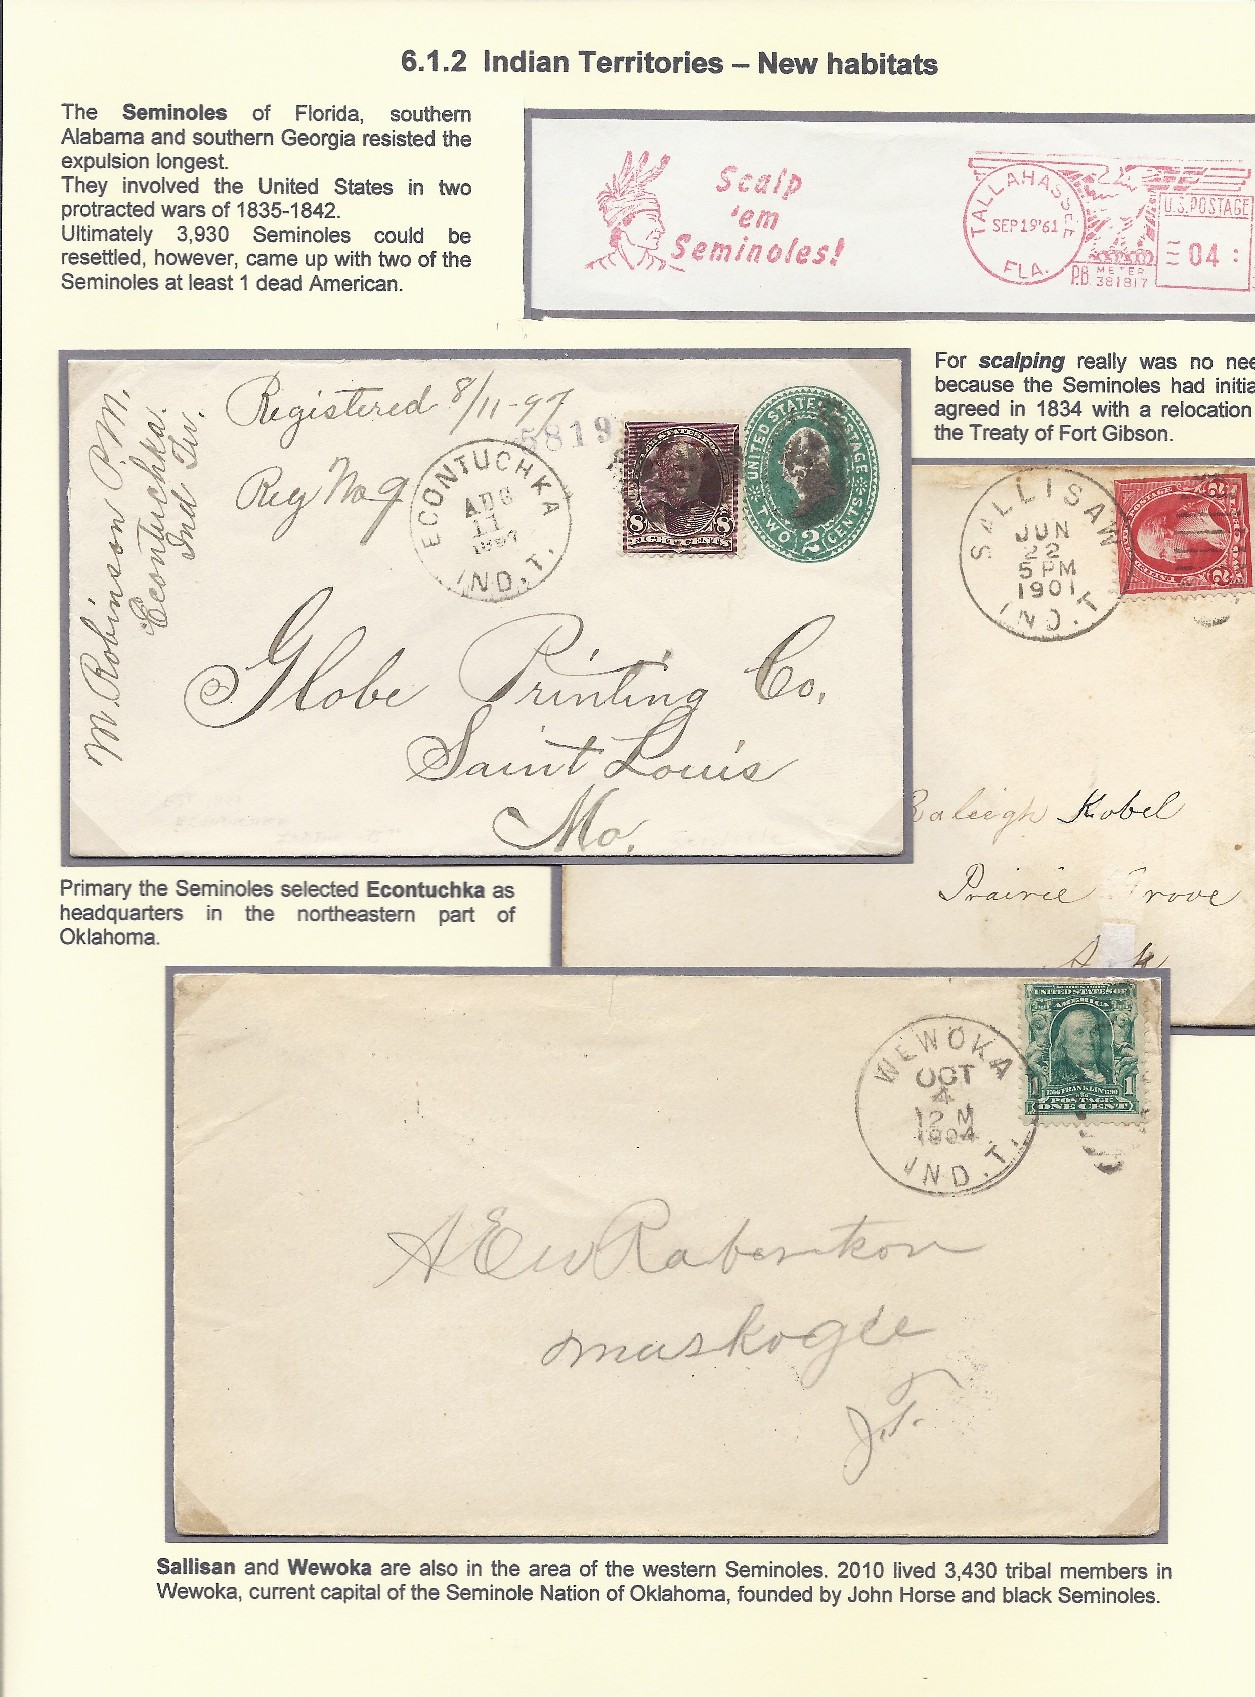 6.1.2 Indian Territories – New habitats
The Seminoles of Florida, southern
Alabama and southern Georgia resisted the
expulsion longest.
They involved the United States in two
protracted wars of 1835-1842.
Ultimately 3,930 Seminoles could be
resettled, however, came up with two of the
Seminoles at least 1 dead American.
Scalp
'em
Seminoles!
TALLAHASSEE
SEP 19 '61
FLA.
U.S. POSTAGE
04
P.B. METER
381817
For scalping really was no nee
because the Seminoles had initia
agreed in 1834 with a relocation
the Treaty of Fort Gibson.
M. Robinson P.M.
Econtuchka.
Ind Ter.
Registered 8/11-97
5819
Reg No 9
ECONTUCHKA
AUG
11
1897
IND. T.
8 8
EIGHT CENTS
UNITED STATES POSTAGE
TWO 2 CENTS
Globe Printing Co.
Saint Louis
Mo.
SALLISAW
JUN
22
5 PM
1901
IND. T.
Raleigh Kobel
Prairie Grove
Ark
Primary the Seminoles selected Econtuchka as
headquarters in the northeastern part of
Oklahoma.
WEWOKA
OCT
4
12 M
1904
IND. T.
UNITED STATES OF
AMERICA
1 FRANKLIN 1
POSTAGE
ONE CENT
A E W Robertson
Muskogee
I.T.
Sallisan and Wewoka are also in the area of the western Seminoles. 2010 lived 3,430 tribal members in
Wewoka, current capital of the Seminole Nation of Oklahoma, founded by John Horse and black Seminoles.